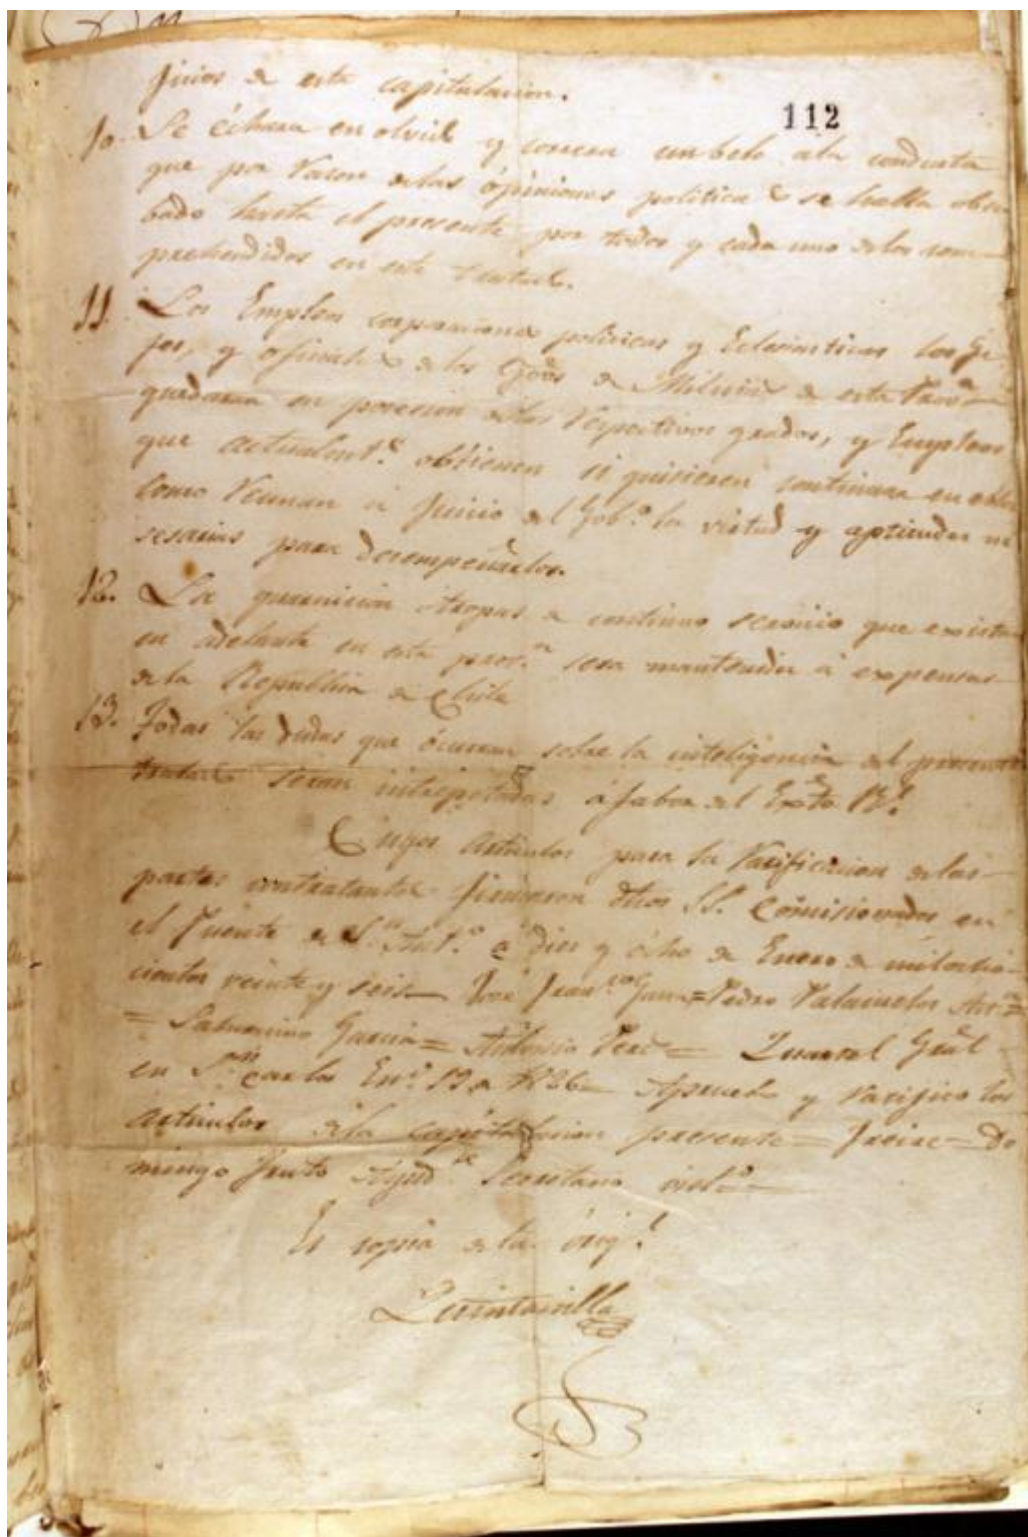 juicios de esta capitulacion.
112
10. Se échara en olvido y correra un belo ala conducta
que por razon delas ópiniones politicas se halla obser
bado hasta el presente por todos y cada uno delos com-
prehendidos en este tratado.
11. Los Empleos corporaciones politicas y Eclesiasticas los Ge
fes, y oficiales de los de Milicias de esta Prov.a
quedaran en posesion delos respectivos grados, y Empleos
que actualmt.e obtienen si quisieren continuar en ellos
como reunan á juicio del Gob.o la virtud y aptitudes ne
sesarias para decempeñarlos.
12. La guarnicion ótropas de continuo servicio que existan
en adelante en esta prov.a sera mantenida á expensas
de la Republica de Chile
13. Todas las dudas que ócurran sobre la inteligencia del presente
tratado seran interpretadas á fabor del Exto. Rl.
Cuyos articulos para la ratificacion delas
partes contratantes firmaron dhos SS. comisionados en
el Fuente de S.n Ant.o á dies y ócho de Enero de mil ocho
cientos veinte y seis José Fran.co Gana = Pedro Palazuelos Ast.a
= Saturnino Garcia = Antonio Peré = Quartel Gral
en S.n Carlos En.o 19 de 1826 Apruebo y ratifico los
articulos dela capitulacion presente = Freire = Do
mingo Fruto Ayud.te Secretario
Es copia de la órig.l
Quintanilla